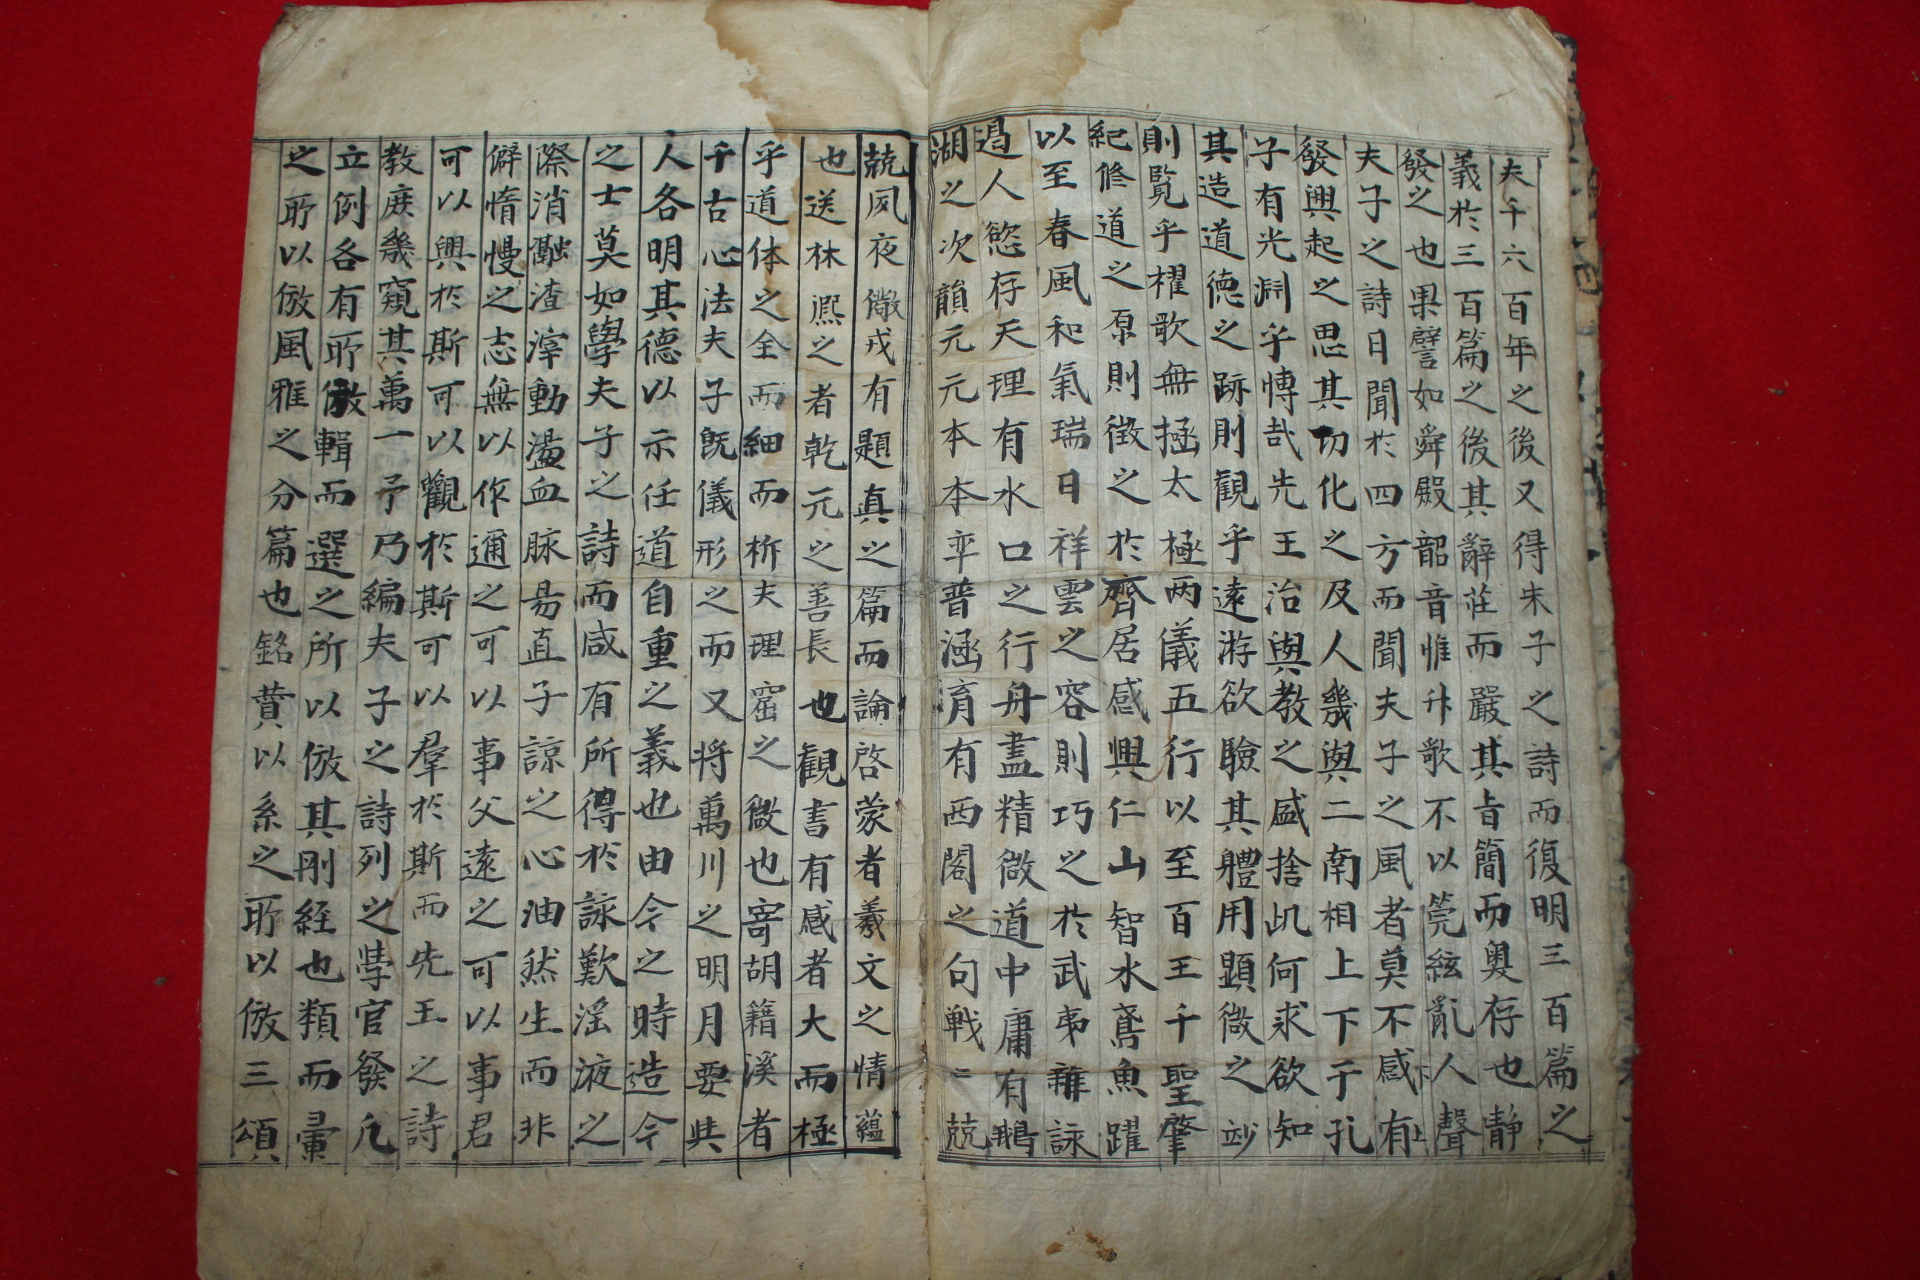 夫千六百年之後又得朱子之詩而復明三百篇之
義於三百篇之後其辭莊而嚴其旨簡而奧存也靜
發之也果譬如舜殿韶音惟升歌不以筦絃亂人聲
夫子之詩日聞於四方而聞夫子之風者莫不感有
發興起之思其切化之及人幾與二南相上下于孔
子有光淵乎慱哉先王治與教之盛捨此何求欲知
其造道德之跡則觀乎遠游欲驗其體用顯微之妙
則覧乎櫂歌無拯太極两儀五行以至百王千聖肇
紀修道之原則徵之於齊居感興仁山智水鳶魚躍
以至春風和氣瑞日祥雲之容則巧之於武夷雜詠
遏人慾存天理有水口之行舟盡精微道中庸有鵝
湖之次韻元元本本卒普涵育有西閣之句戦〻兢
兢夙夜儆戎有題真之篇而論啓蒙者羲文之情蘊
也送林熈之者乾元之善長也觀書有感者大而極
乎道体之全而細而析夫理窟之微也寄胡籍溪者
千古心法夫子既儀形之而又将萬川之明月要與
人各明其德以示任道自重之義也由今之時造今
之士莫如學夫子之詩而咸有所得於詠歎滛液之
際消融渣滓動盪血脉易直子諒之心油然生而非
僻惰慢之志無以作邇之可以事父遠之可以事君
可以興於斯可以觀於斯可以羣於斯而先王之詩
教庶幾窺其萬一予乃編夫子之詩列之學官發凡
立例各有所倣輯而選之所以倣其刚経也類而彙
之所以倣風雅之分篇也銘賛以系之所以倣三頌